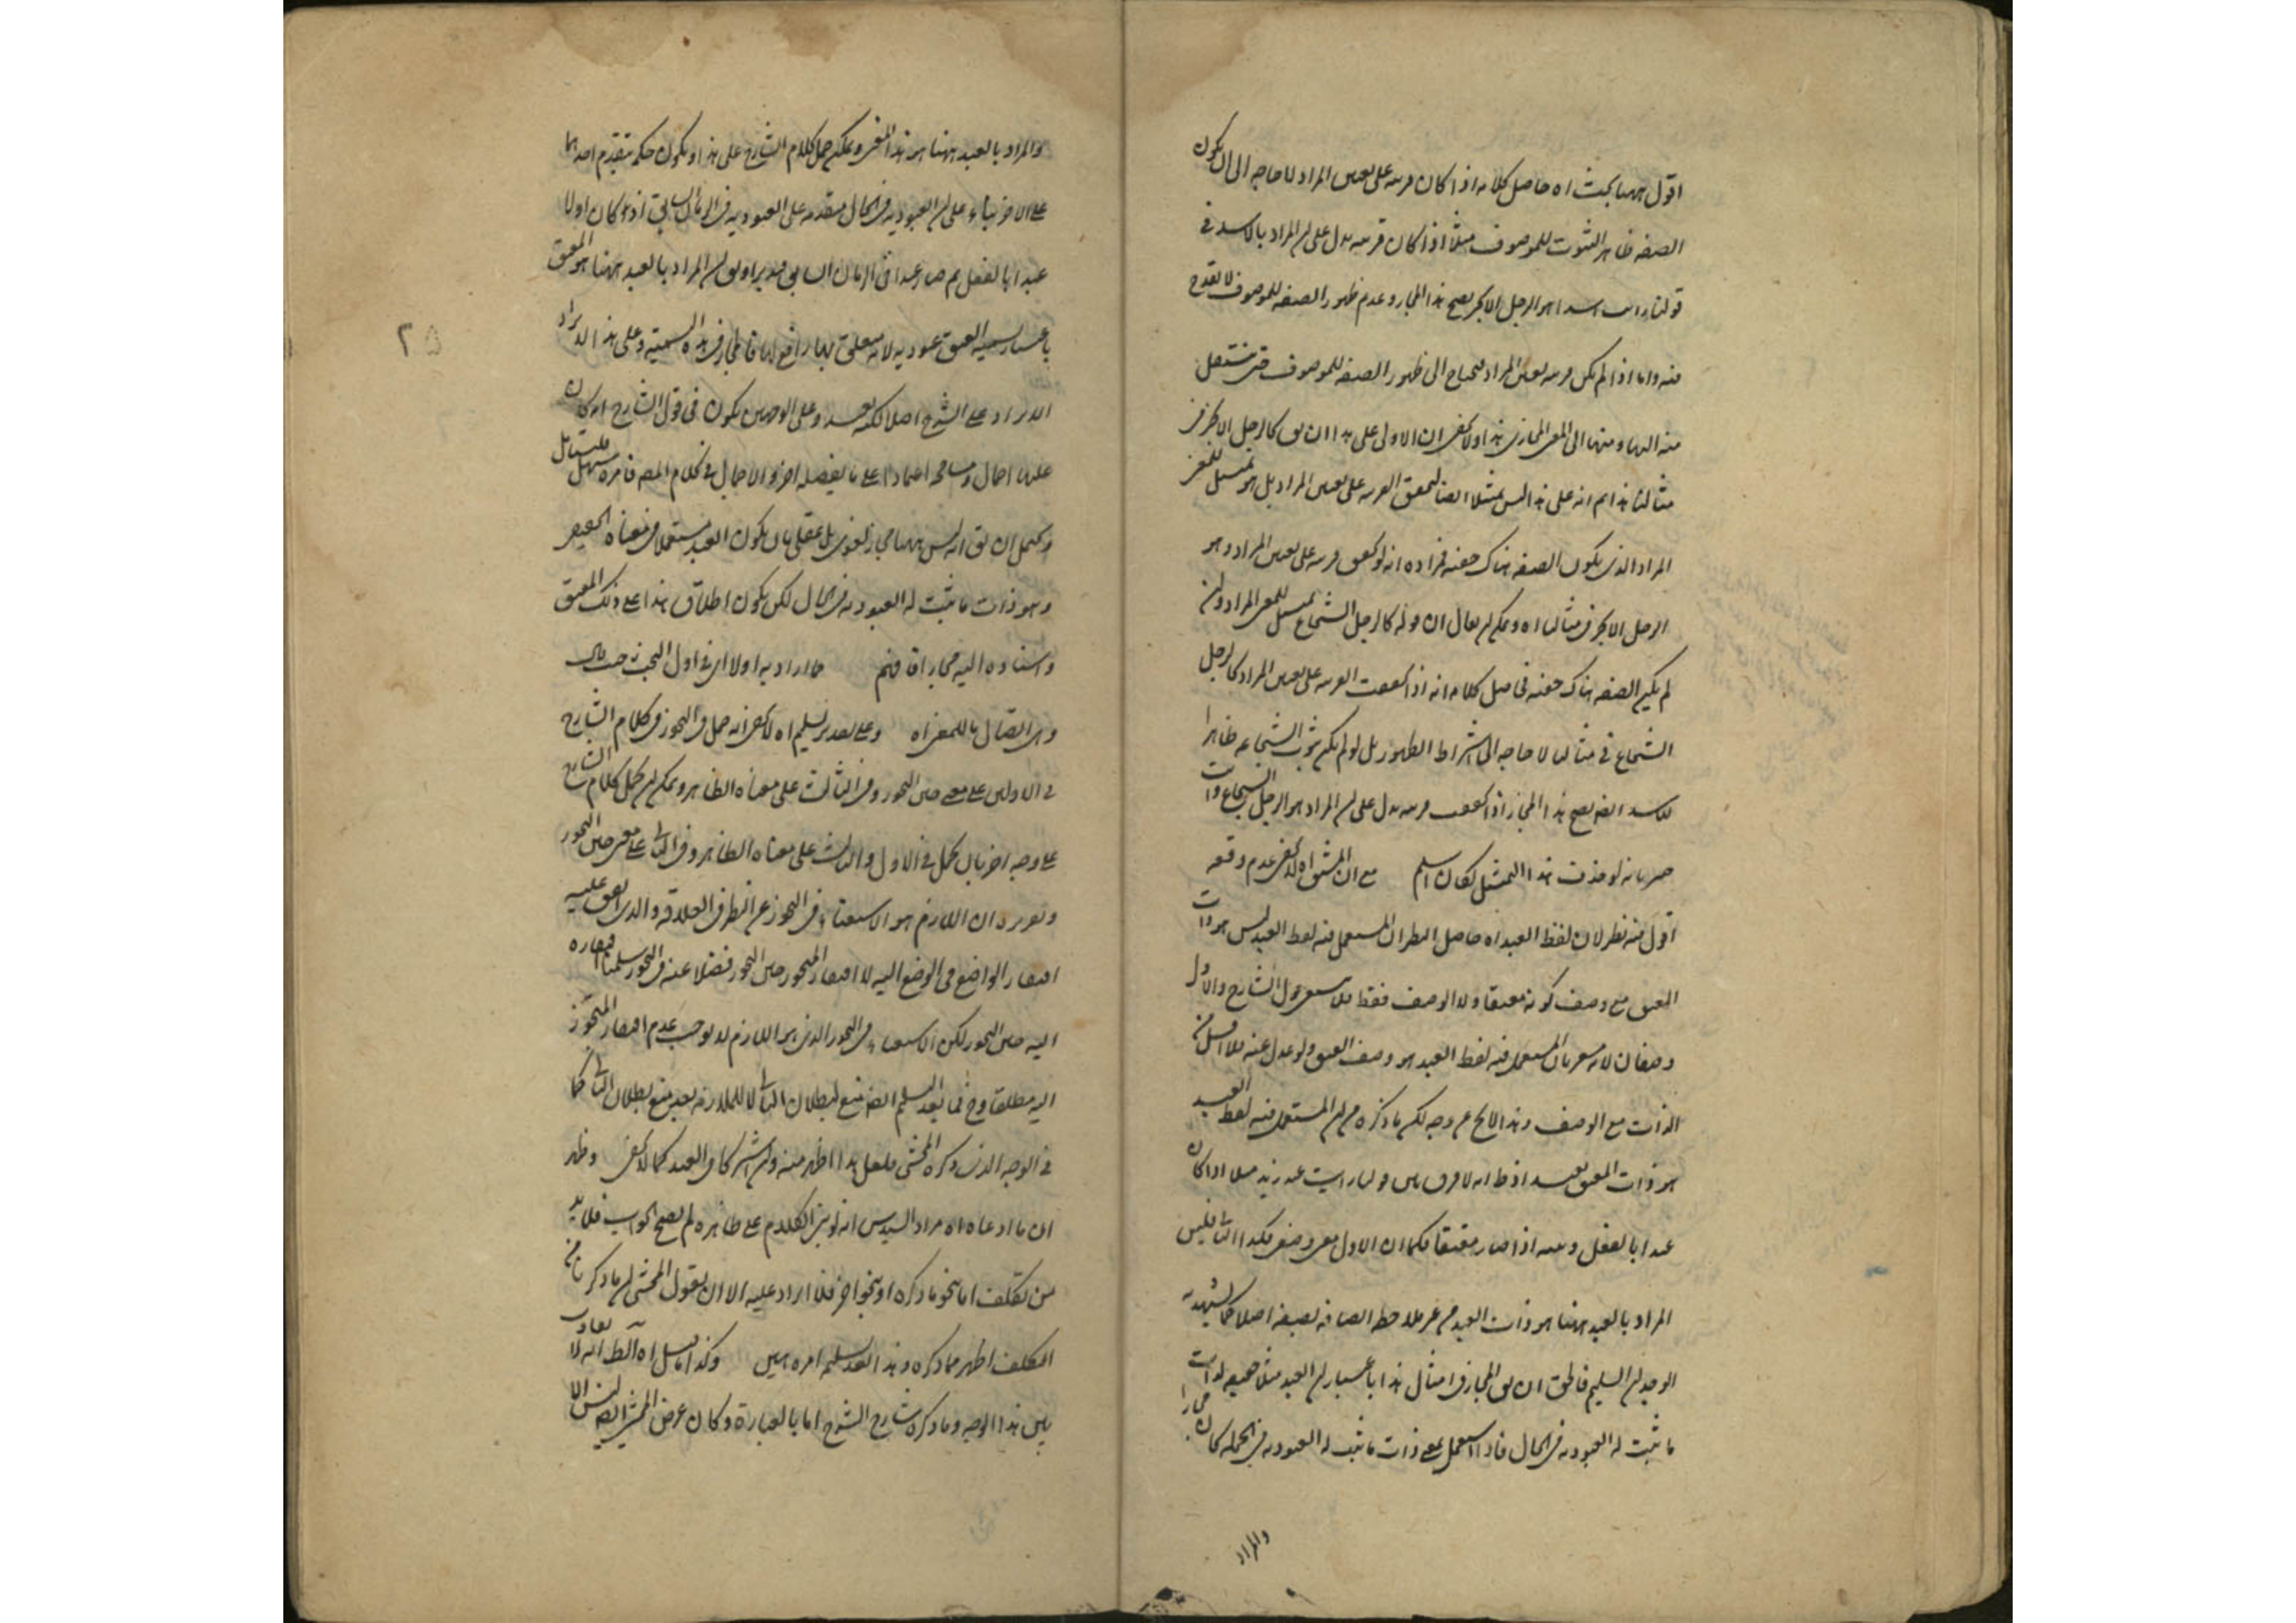 اقول ههنا بحث اه حاصل كلامه اذا كان قرينه على تعيين المراد لا حاجه الى ان يكون
الصفه ظاهر الثبوت للموصوف مثلا اذا كان قرينه يدل على ان المراد بالاسد في
قولنا رايت اسدا هو الرجل الابخر يصح هذا المجاز وعدم ظهور الصفه للموصوف لا يقدح
فيه واما اذا لم يكن قرينه تعين المراد فيحتاج الى ظهور الصفه للموصوف حتى ينتقل
منه اليها ومنها الى المعنى المجازى هذا ولا يخفى ان الاولى على هذا ان يق كالرجل الابخر في
مثالنا هذا ثم انه على هذا ليس تمثيلا ايضا لتحقق القرينه على تعيين المراد بل هو تمثيل للمعنى
المراد الذى يكون الصفه هناك خفيه فمراده انه لو تحقق قرينه على تعيين المراد وهو
الرجل الابخر في مثالنا اه ويمكن ان يقال ان قوله كالرجل الشجاع تمثيل للمعنى المراد وان
لم يكن الصفه هناك خفيه فحاصل كلامه انه اذا تحققت القرينه على تعيين المراد كالرجل
الشجاع في مثالنا لا حاجه الى اشتراط الظهور بل لو لم يكن ثبوت الشجاعه ظاهرا
للاسد ايضا يصح هذا المجاز اذا تحققت قرينه يدل على ان المراد هو الرجل الشجاع وانت
خبير بانه لو حذف هذا التمثيل لكان اسلم مع ان المثنى اه لا يخفى عدم وقعه
اقول فيه نظر لان لفظ العبد اه حاصل النظر ان المستعمل فيه لفظ العبد ليس هو ذات
المعتق مع وصف كونه معتقا ولا الوصف فقط فلا يستقيم قول الشارح والاول
وصفان لانه يشعر بان المستعمل فيه لفظ العبد هو وصف العتق ولو عدل عنه فلا اقل من
الذات مع الوصف وهذا لا يخ عن وجه لكن ما ذكره من ان المستعمل فيه لفظ العبد
هو ذات المعتق بعيد اذ ظ انه لا فرق بين قولنا رايت عبد زيد مثلا اذا كان
عبدا بالفعل وبينه اذا صار معتقا فكما ان الاول معنى وصفى فكذا الثانى فليس
المراد بالعبد ههنا هو ذات العبد من غير ملاحظه اتصافه بصفه اصلا كما يشهد به
الوجدان السليم فالحق ان يق المجاز في امثال هذا باعتبار ان العبد مثلا حقيقه لذات
ما يثبت له العبوديه في الحال فاذا استعمل بمعنى ذات ما يثبت له العبوديه في الجمله كان مجازا
والمراد
والمراد بالعبد ههنا هو هذا المعنى ويمكن حمل كلام الشارح على هذا او يكون حكمه بتقدم احدهما
على الاخر بناء على ان العبوديه في الحال متقدمه على العبوديه في الزمان السابق اذ هو كان اولا
عبدا بالفعل ثم صار عبدا في الزمان السابق فتدبر او يق ان المراد بالعبد ههنا هو المعتق
باعتبار تسميه العتق عبوديه لانه متعلق بها رافع لها فالمجاز في هذه التسميه وعلى هذا الايراد
الايراد على الشرح اصلا لكنه بعيد وعلى الوجهين يكون في قول الشارح انه كان
عليها اجمال ومسامحه اعتمادا على ما يفصله اخر والاجمال في كلام المص فامره سهل فليتامل
ويحتمل ان يق انه ليس ههنا مجاز لغوى بل عقلى بان يكون العبد مستعملا في معناه الحقيقى
وهو ذات ما يثبت له العبوديه في الحال لكن يكون اطلاق هذا على ذلك المعتق
واسناده اليه مجازا فافهم ما اراد به اولا اى في اول البحث حيث قال
وهى اتصال ما للمعنى اه وعلى تقدير تسليم اه لا يخفى انه حمل في التجوز في كلام الشارح
في الاولين على معنى حين التجوز وفي الثالث على معناه الظاهر ويمكن ان يحمل كلام الشارح
على وجه اخر بان يحمل في الاول والثالث على معناه الظاهر وفي الثانى على معنى حين التجوز
وتقريره ان اللازم هو الاستغناء في التجوز عن النظر في العلاقه والذى اتفق عليه
افتقار الواضع في الوضع اليه لا افتقار المتجوز حين التجوز فضلا عنه في التجوز سلمنا افتقاره
اليه حين التجوز لكن الاستغناء في التجوز الذى هو اللازم لا يوجب عدم افتقار المتجوز
اليه مطلقا وح فما بعد التسليم ايضا منع لبطلان التالى لا للملازمه بعد منع بطلان التالى كما
في الوجه الذى ذكره المحشى فلعل هذا اظهر منه وان اشتركا في البعد كما لا يخفى وظهر
ان ما ادعاه اه مراد السيد انه لو بنى الكلام على ظاهره لم يصح الجواب فلا بد
من تكلف اما بنحو ما ذكره او بنحو اخر فلا ايراد عليه الا ان يقول المحشى ان ما ذكر من
التكلف اظهر مما ذكره وهذا بعد تسليمه امره هين وكذا ما قيل اه الظ انه لا تفاوت
بين هذا الوجه وما ذكره شارح الشرح اما بالعبارة وكان غرض المحشى ايضا ليس الا